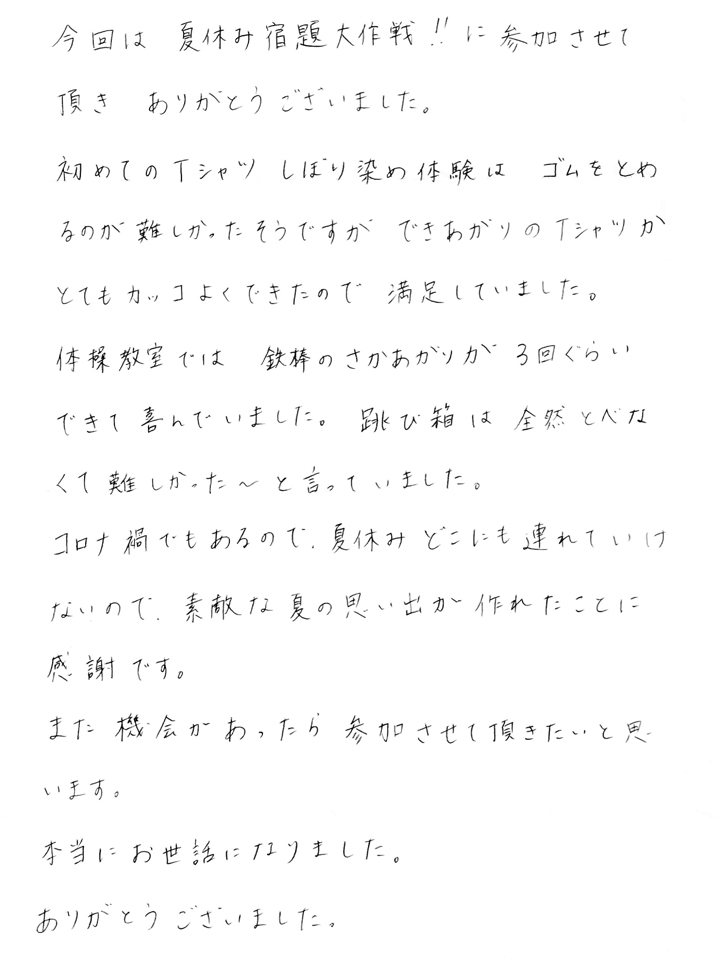 今回は 夏休み宿題大作戦!! に 参加させて
頂き ありがとうございました。
初めてのTシャツ しぼり染め体験は ゴムをとめ
るのが難しかったそうですが できあがりのTシャツが
とてもカッコよくできたので 満足していました。
体操教室では 鉄棒のさかあがりが 3回ぐらい
できて喜んでいました。 跳び箱は 全然とべな
くて難しかった〜と言っていました。
コロナ禍でもあるので、夏休み どこにも連れていけ
ないので、素敵な夏の思い出が 作れたことに
感謝です。
また機会があったら 参加させて頂きたいと思
います。
本当にお世話になりました。
ありがとうございました。